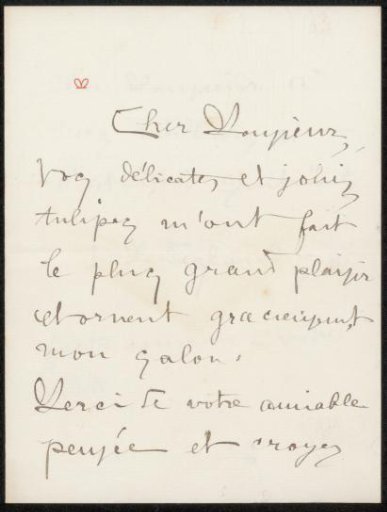 Cher Monsieur,
Vos délicates et jolies
tulipes m'ont fait
le plus grand plaisir
et ornent gracieusement
mon salon.
Merci de votre aimable
pensée et croyez